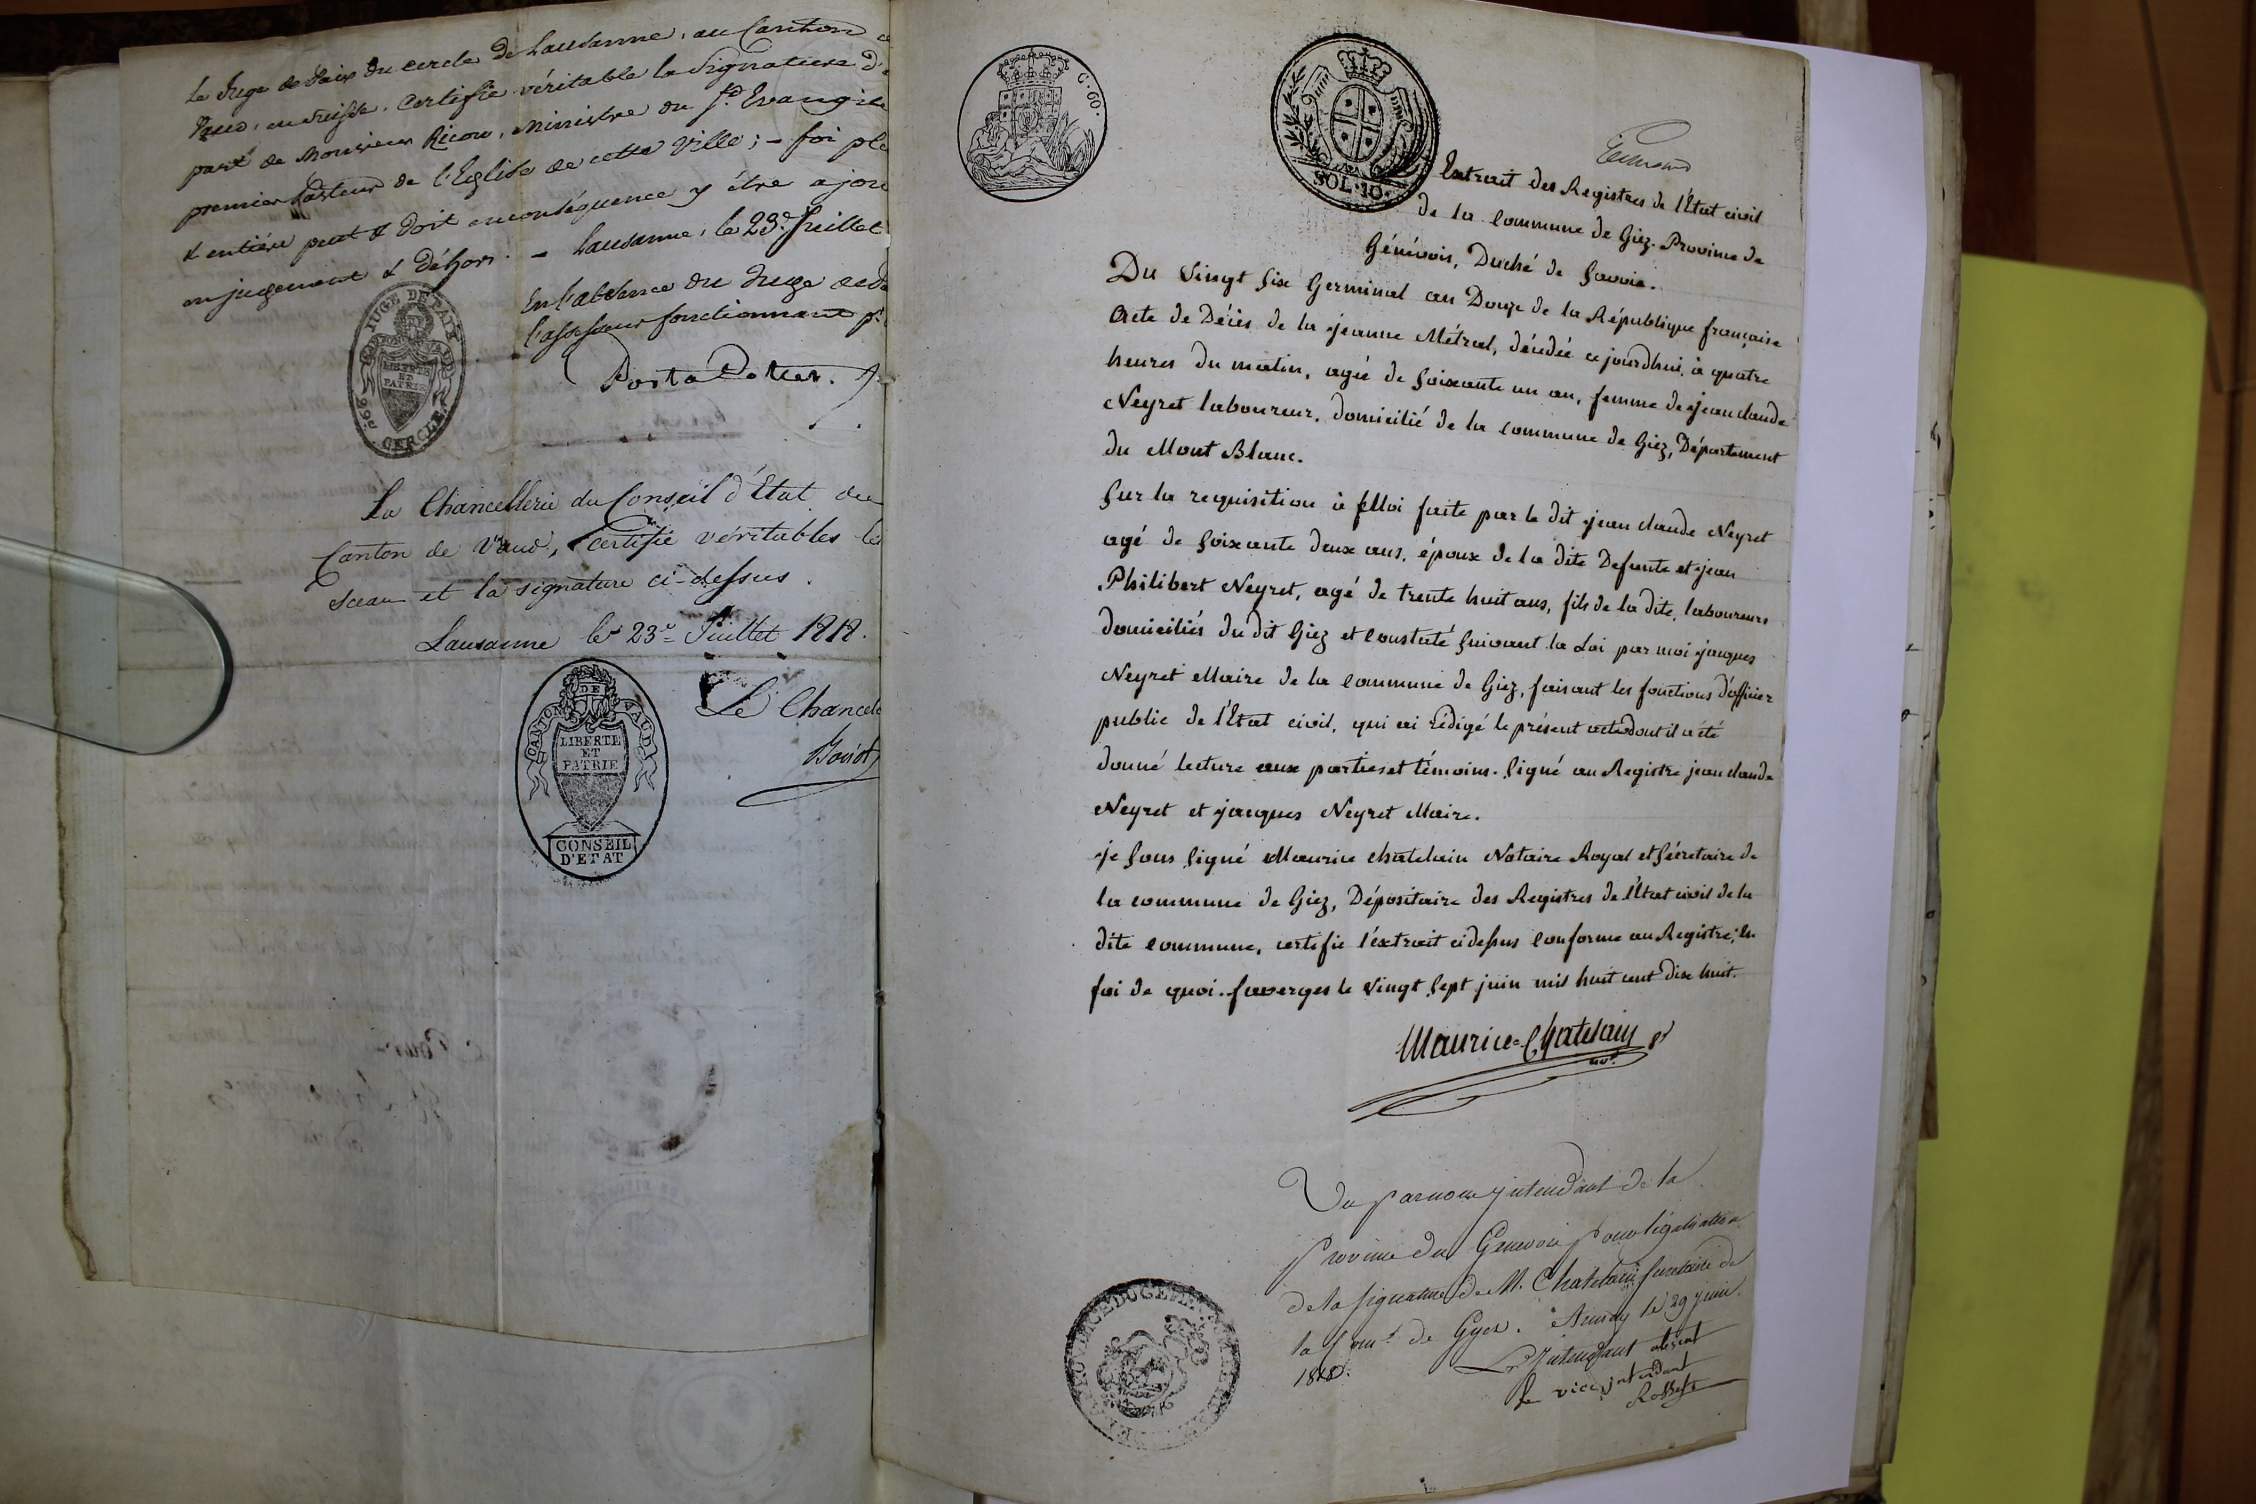 Le Juge de Paix du cercle de Lausanne, au Canton
Vaud, en Suisse, certifie véritable la signature d'
part de Monsieur Ricou, Ministre du St Evangile
premier Pasteur de l'Eglise de cette Ville; – foi ple
& entière peut & doit en conséquence y être ajou
en jugement & déhors. – Lausanne, le 23e Juillet
En l'absence du Juge de
l'assesseur fonctionnant pr
Porta
JUGE DE PAIX
CANTON DE VAUD
LIBERTE
ET
PATRIE
CERCLE
La Chancellerie du Conseil d'Etat du
Canton de Vaud, certifie véritables les
sceau et la signature ci-dessus.
Lausanne le 23e Juillet 1818.
Le Chancel
CANTON DE VAUD
LIBERTE
ET
PATRIE
CONSEIL
D'ETAT
C. 60.
SOL. 10.
Extrait des Registres de l'Etat civil
de la commune de Giez. Province de
Génévois, Duché de Savoie.
Du vingt six Germinal an Douze de la République française
Acte de Décès de la jeanne Métral, décédée cejourdhui, à quatre
heures du matin, agée de soixante un an, femme de jean claude
Neyret laboureur, domicilié de la commune de Giez, Département
du Mont Blanc.
Sur la requisition à Moi faite par le dit jean claude Neyret
agé de soixante deux ans, époux de la dite Defunte et jean
Philibert Neyret, agé de trente huit ans, fils de la dite, laboureurs
domiciliés du dit Giez et constaté suivant la Loi par moi jacques
Neyret Maire de la commune de Giez, faisant les fonctions d'officier
public de l'Etat civil, qui ai rédigé le présent acte dont il a été
donné lecture aux parties et témoins. Signé au Registre jean claude
Neyret et jacques Neyret Maire.
je sous signé Maurice chatelain Notaire Royal et sécretaire de
la commune de Giez, Dépositaire des Registres de l'Etat civil de la
dite commune, certifie l'extrait ci dessus conforme au Registre; En
foi de quoi. faverges le vingt sept juin mil huit cent dix huit.
Maurice Chatelain
not.
Vu par nous jntendant de la
province du Genevois pour légalisation
de la signature de M. Chatelain secretaire de
la Com.e de Gyez. Annecy le 29 juin
1818.
L'Jntendant absent
Le vice jntendant